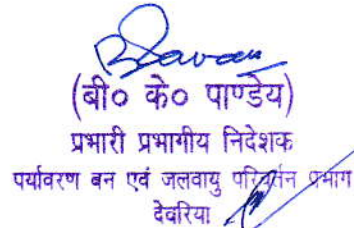 (बी० के० पाण्डेय)
प्रभारी प्रभागीय निदेशक
पर्यावरण बन एवं जलवायु परिवर्तन प्रभाग
देवरिया